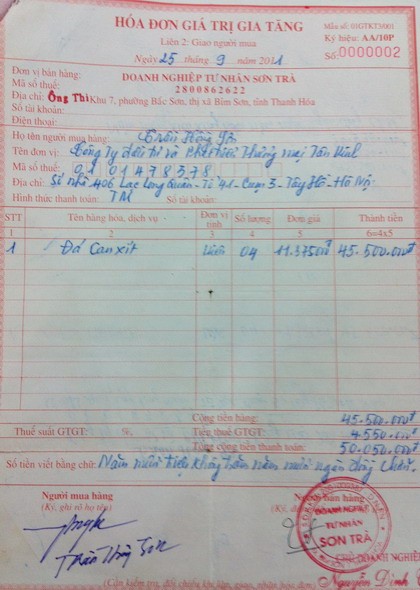 HÓA ĐƠN GIÁ TRỊ GIA TĂNG
Mẫu số: 01GTKT3/001
Liên 2: Giao người mua
Ký hiệu: AA/10P
Ngày 25 tháng 9 năm 2011
Số: 0000002
Đơn vị bán hàng: DOANH NGHIỆP TƯ NHÂN SƠN TRÀ
Mã số thuế: 2800862622
Địa chỉ: Ông Thi Khu 7, phường Bắc Sơn, thị xã Bỉm Sơn, tỉnh Thanh Hóa
Số tài khoản:
Điện thoại:
Họ tên người mua hàng: Trần Hồng
Tên đơn vị: Công ty đầu tư và phát triển Thương mại Tân
Mã số thuế: 0101478378
Địa chỉ: Số nhà 406 Lạc Long Quân - Tổ 41 - Cụm 5 - Tây Hồ - Hà Nội
Hình thức thanh toán: TM Số tài khoản:
STT Tên hàng hóa, dịch vụ Đơn vị tính Số lượng Đơn giá Thành tiền
1 2 3 4 5 6=4x5
1 Đá Canxit 04 11.375.000đ 45.500.000đ
Cộng tiền hàng: 45.500.000đ
Thuế suất GTGT: %, Tiền thuế GTGT: 4.550.000đ
Tổng cộng tiền thanh toán: 50.050.000đ
Số tiền viết bằng chữ: Năm mươi triệu không trăm năm mươi ngàn đồng chẵn.
Người mua hàng
Người bán hàng
(Ký, ghi rõ họ tên)
(Ký,
DOANH NGHIỆP
TƯ NHÂN
SƠN TRÀ
Trần Hồng Sơn
CHỦ DOANH NGHIỆP
Nguyễn Đình
(Cần kiểm tra, đối chiếu khi lập, giao, nhận hóa đơn)